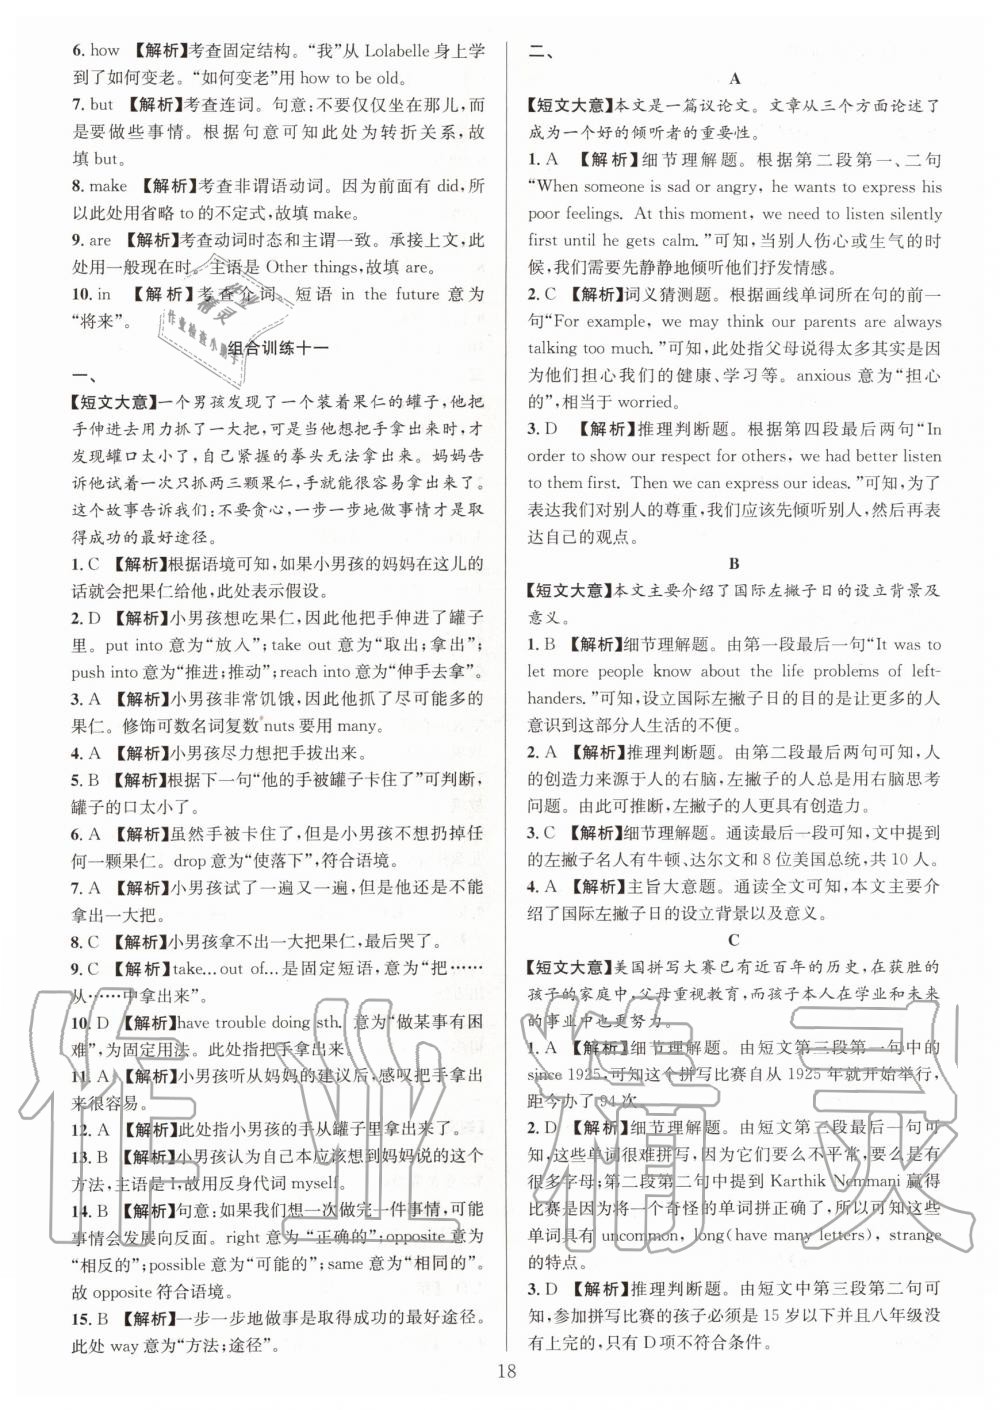 6. how 【解析】考查固定结构。“我”从 Lolabelle 身上学
到了如何变老。“如何变老”用 how to be old。
7. but 【解析】考查连词。句意:不要仅仅坐在那儿,而
是要做些事情。根据句意可知此处为转折关系,故
填 but。
8. make 【解析】考查非谓语动词。因为前面有 did,所
以此处用省略 to 的不定式,故填 make。
9. are 【解析】考查动词时态和主谓一致。承接上文,此
处用一般现在时。主语是 Other things,故填 are。
10. in 【解析】考查介词。短语 in the future 意为
“将来”。
组合训练十一
一、
【短文大意】一个男孩发现了一个装着果仁的罐子,他把
手伸进去用力抓了一大把,可是当他想把手拿出来时,才
发现罐口太小了,自己紧握的拳头无法拿出来。妈妈告
诉他试着一次只抓两三颗果仁,手就能很容易拿出来了。
这个故事告诉我们:不要贪心,一步一步地做事情才是取
得成功的最好途径。
1. C 【解析】根据语境可知,如果小男孩的妈妈在这儿的
话就会把果仁给他,此处表示假设。
2. D 【解析】小男孩想吃果仁,因此他把手伸进了罐子
里。put into 意为“放入”;take out 意为“取出;拿出”;
push into 意为“推进;推动”;reach into 意为“伸手去拿”。
3. A 【解析】小男孩非常饥饿,因此他抓了尽可能多的
果仁。修饰可数名词复数 nuts 要用 many。
4. A 【解析】小男孩尽力想把手拔出来。
5. B 【解析】根据下一句“他的手被罐子卡住了”可判断,
罐子的口太小了。
6. A 【解析】虽然手被卡住了,但是小男孩不想扔掉任
何一颗果仁。drop 意为“使落下”,符合语境。
7. A 【解析】小男孩试了一遍又一遍,但是他就是不能
拿出一大把。
8. C 【解析】小男孩拿不出一大把果仁,最后哭了。
9. C 【解析】take… out of… 是固定短语,意为“把……
从……中拿出来”。
10. D 【解析】have trouble doing sth. 意为“做某事有困
难”,为固定用法。此处指把手拿出来。
11. A 【解析】小男孩听从妈妈的建议后,感叹把手拿出
来很容易。
12. A 【解析】此处指小男孩的手从罐子里拿出来了。
13. B 【解析】小男孩认为自己本应该想到妈妈说的这个
方法,主语是 I,故用反身代词 myself。
14. B 【解析】句意:如果我们想一次做完一件事情,可能
事情会发展向反面。right 意为“正确的”;opposite 意为
“相反的”;possible 意为“可能的”;same 意为“相同的”。
故 opposite 符合语境。
15. B 【解析】一步一步地做事是取得成功的最好途径。
此处 way 意为“方法;途径”。
二、
A
【短文大意】本文是一篇议论文。文章从三个方面论述了
成为一个好的倾听者的重要性。
1. A 【解析】细节理解题。根据第二段第一、二句
“When someone is sad or angry, he wants to express his
poor feelings. At this moment, we need to listen silently
first until he gets calm.”可知,当别人伤心或生气的时
候,我们需要先静静地倾听他们抒发情感。
2. C 【解析】词义猜测题。根据画线单词所在句的前一
句“For example, we may think our parents are always
talking too much.”可知,此处指父母说得太多其实是因
为他们担心我们的健康、学习等。anxious 意为“担心
的”,相当于 worried。
3. D 【解析】推理判断题。根据第四段最后两句“In
order to show our respect for others, we had better listen
to them first. Then we can express our ideas.”可知,为了
表达我们对别人的尊重,我们应该先倾听别人,然后再表
达自己的观点。
B
【短文大意】本文主要介绍了国际左撇子日的设立背景及
意义。
1. B 【解析】细节理解题。由第一段最后一句“It was to
let more people know about the life problems of left-
handers.”可知,设立国际左撇子日的目的是让更多的人
意识到这部分人生活的不便。
2. A 【解析】推理判断题。由第二段最后两句可知,人
的创造力来源于人的右脑,左撇子的人总是用右脑思考
问题。由此可推断,左撇子的人更具有创造力。
3. C 【解析】细节理解题。通读最后一段可知,文中提到
的左撇子名人有牛顿、达尔文和 8 位美国总统,共 10 人。
4. A 【解析】主旨大意题。通读全文可知,本文主要介
绍了国际左撇子日的设立背景以及意义。
C
【短文大意】美国拼写大赛已有近百年的历史,在获胜的
孩子的家庭中,父母重视教育,而孩子本人在学业和未来
的事业中也更努力。
1. A 【解析】细节理解题。由短文第三段第一句中的
since 1925,可知这个拼写比赛自从 1925 年就开始举行,
距今办了 94 次。
2. D 【解析】细节理解题。由短文第二段最后一句可
知,这些单词很难拼写,因为它们要么不常用,要么是有
很多字母;第二段第二句中提到 Karthik Nemmani 赢得
比赛是因为将一个奇怪的单词拼正确了,所以这些单词
具有 uncommon, long(have many letters), strange
的特点。
3. D 【解析】推理判断题。由短文中第三段第二句可
知,参加拼写比赛的孩子必须是 15 岁以下并且八年级没
有上完的,只有 D 项不符合条件。
18
作业精灵
作业检查小助手
作业精灵